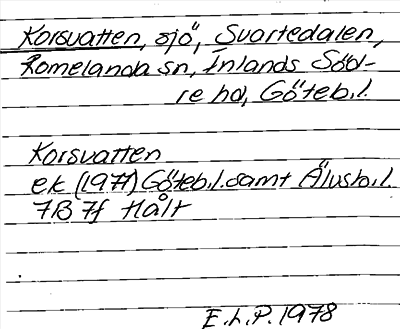 Korsvatten, sjö, Svartedalen,
Romelanda sn, Inlands Söd-
re hd, Göteb.l.
Korsvatten
ek (1977) Göteb.l. samt Älvsb.l.
7B 7f Hålt
E.L.P. 1978